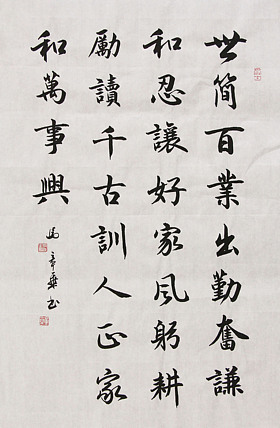 世簡百業出勤奮謙
和忍讓好家風躬耕
勵讀千古訓人正家
和萬事興